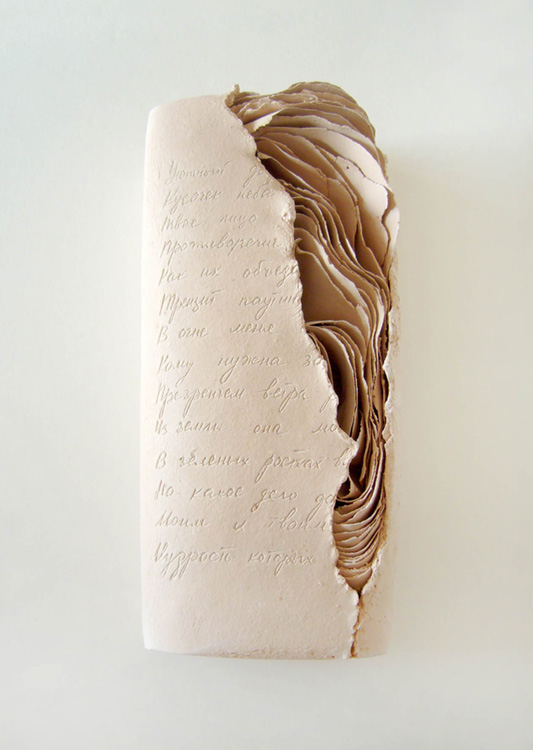 Кусочек неба
Твое лицо
Противоречие
Как их объез
Трещит паутин
В огне меня
Кому нужна за
Презреньем ветра р
Из земли она мо
В зеленых ростках в
Но какое дело до
Моим и твоим
Мудрость которых